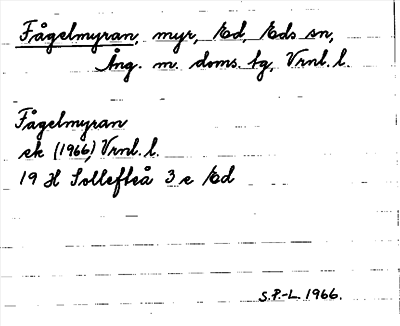 Fågelmyran, myr, Ed, Eds sn,
Ång. m. doms. bg, Vrnl. l.
Fågelmyran
ek (1966) Vrnl. l.
19 H Sollefteå 3 e Ed
S.P.-L. 1966.